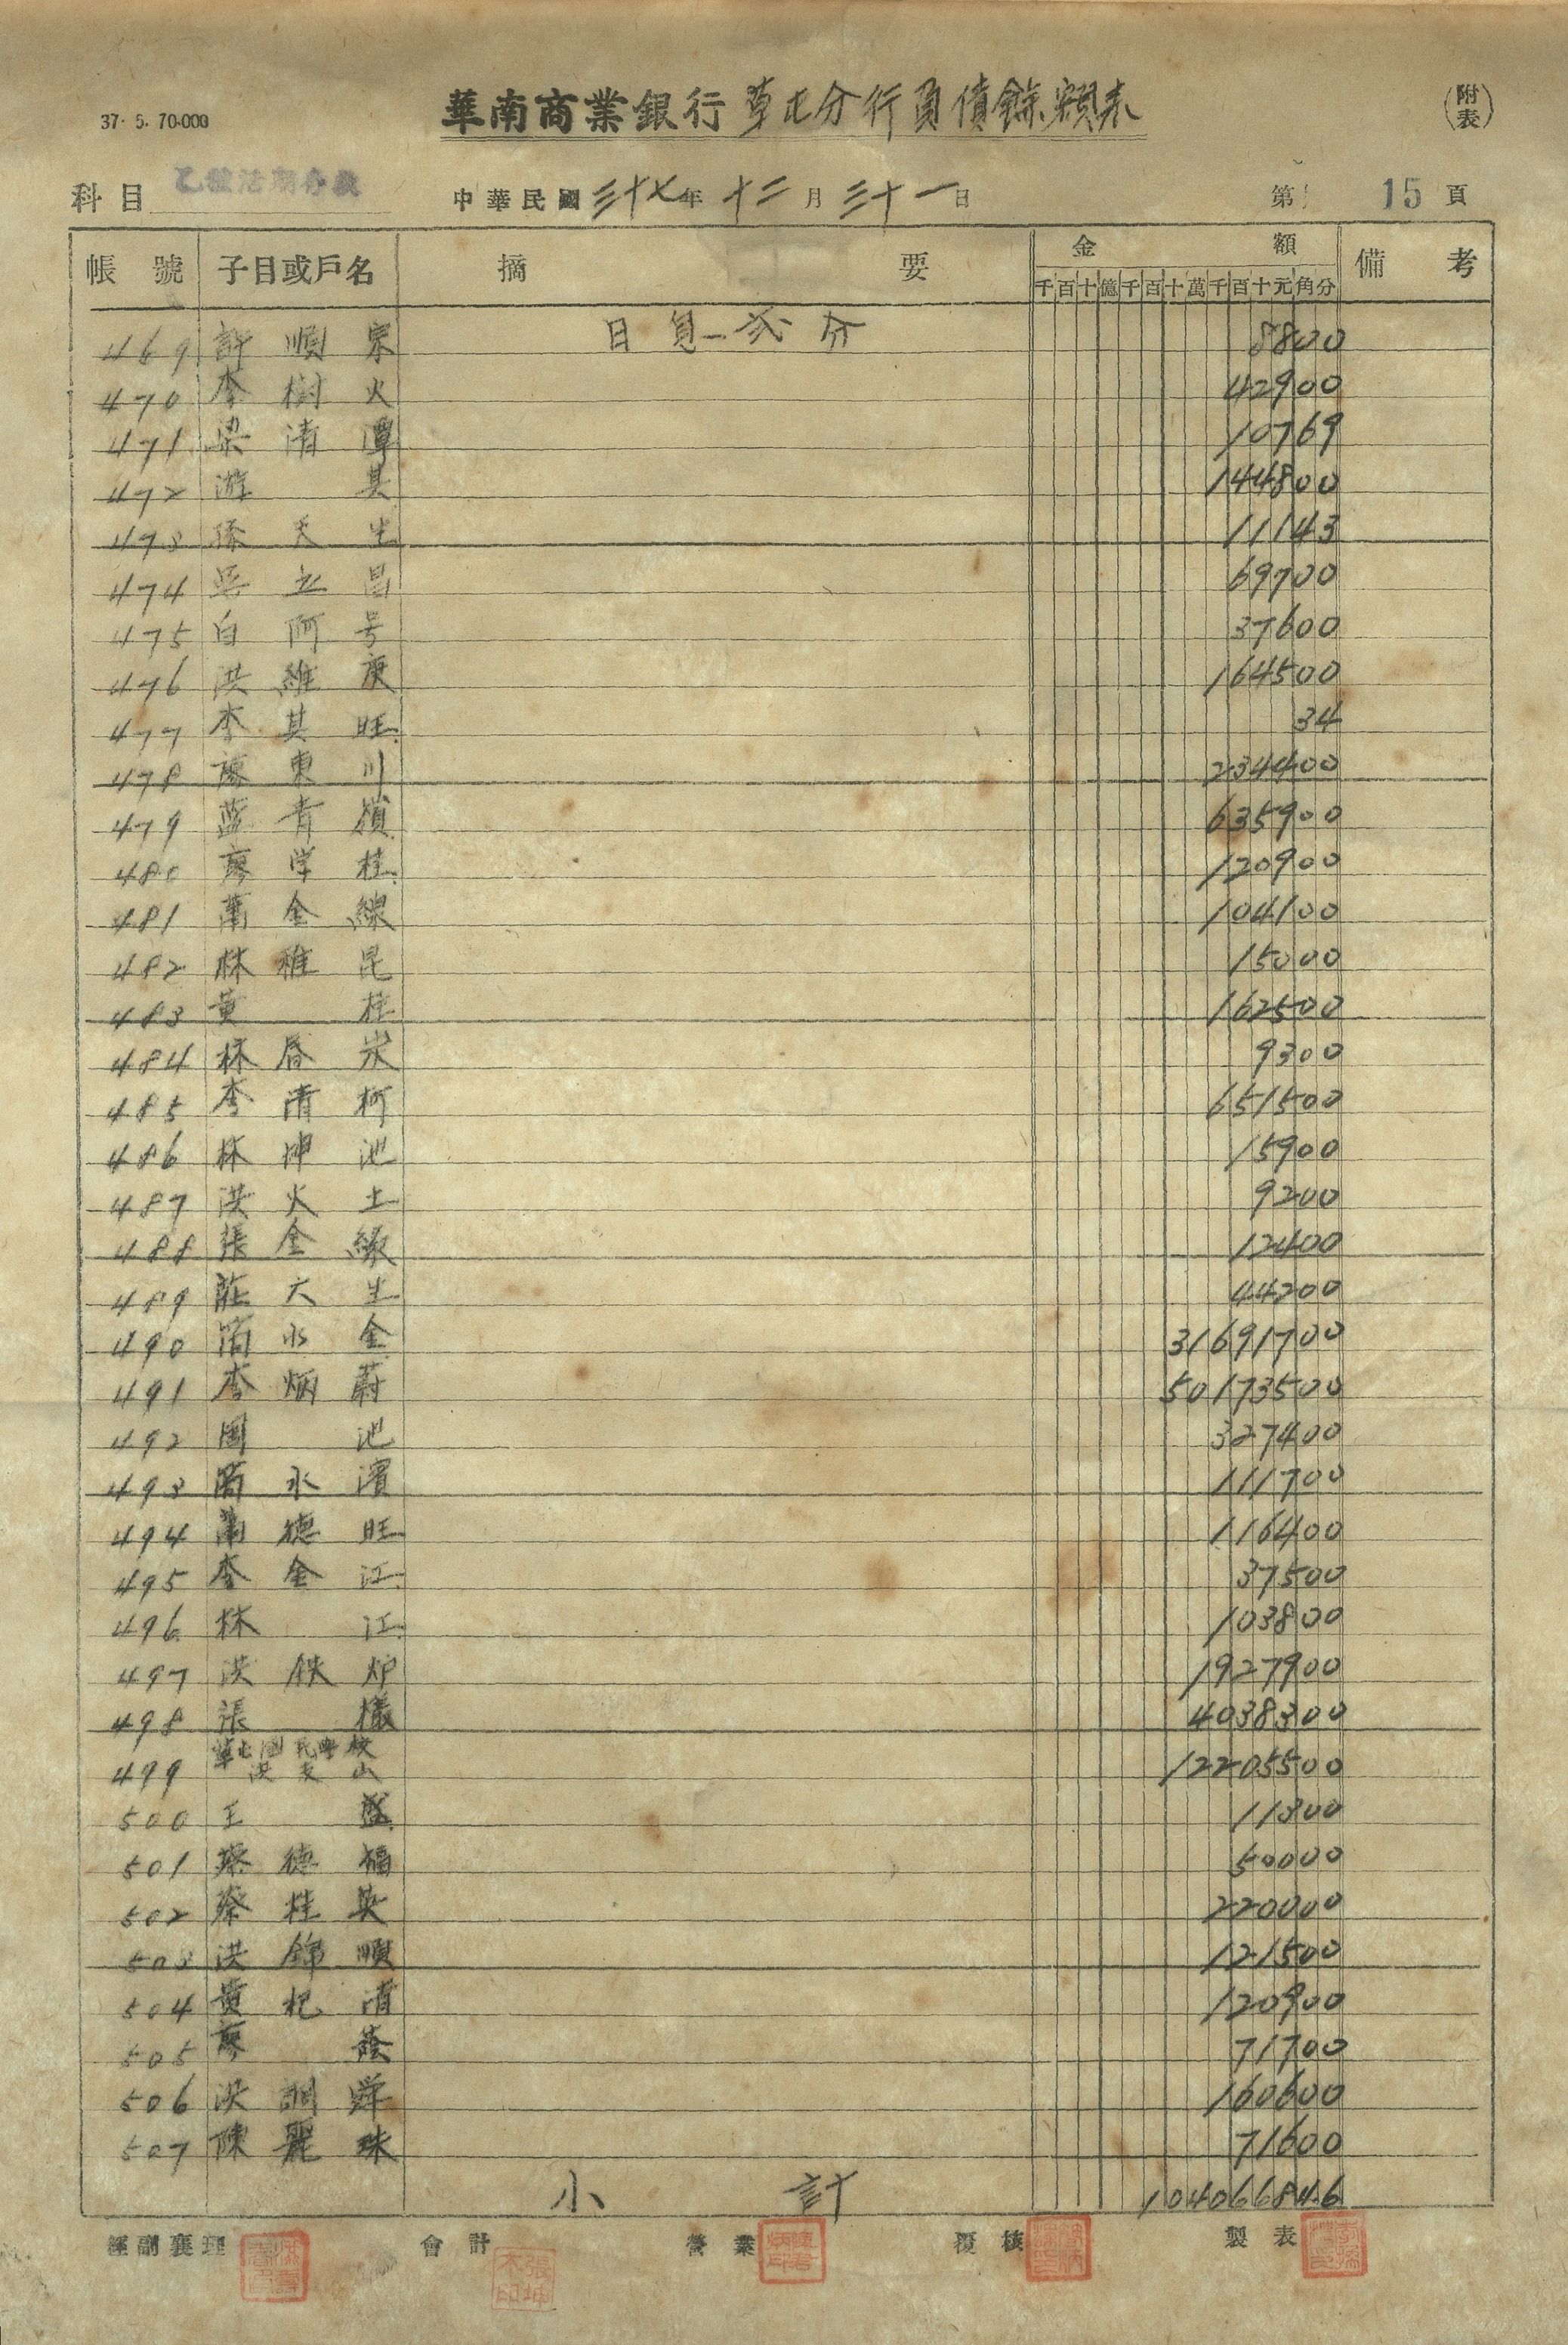 37. 5. 70.000
華南商業銀行 草屯分行負債餘額表
(附表)
科目 乙種活期存款 中華民國三十七年十二月三十一日 第 15 頁
帳號 子目或戶名 摘要 金額 備考
千百十億千百十萬千百十元角分
469 許順宗 日息一弍分 8800
470 李樹火 42900
471 梁清潭 10769
472 游其 144800
473 天生 11143
474 吳立昌 69700
475 白阿号 37600
476 洪維庚 164500
477 李其旺 34
478 陳東川 234400
479 蓝青 635900
480 廖学桂 120900
481 蕭金線 104100
482 林稚昆 15000
483 黃桂 162500
484 林 9300
485 李清柯 651500
486 林坤池 15900
487 洪火土 9200
488 張金緞 12400
489 莊大生 44200
490 簡水金 31691700
491 李炳蔚 50173500
492 池 327400
493 簡永濱 111700
494 蕭德旺 116400
495 李金江 37500
496 林江 103800
497 洪鉄炉 1927900
498 張樣 4038300
499 草屯國民學校 洪支山 12205500
500 王盛 11300
501 蔡德福 50000
502 蔡桂英 220000
503 洪錦順 121500
504 黃杞清 120900
505 廖 71700
506 洪 160600
507 陳麗珠 71600
小計 104066846
經副襄理 會計 營業 覆核 製表